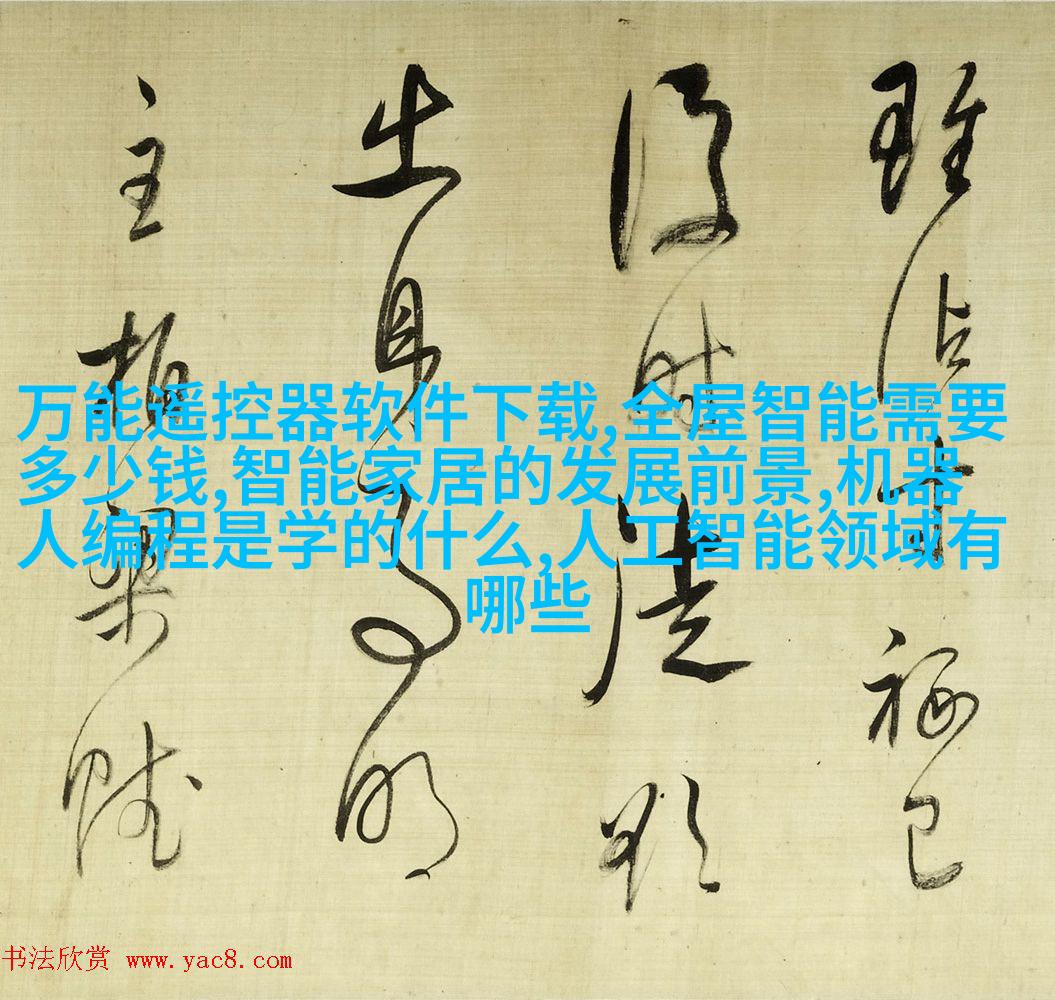 万能遥控器软件下载,全屋智能需要
多少钱,智能家居的发展前景,机器
人编程是学的什么,人工智能领域有
哪些
雖沾已
時浩歎
出身事明
主柏梁賦
书法欣赏 www.yac8.com